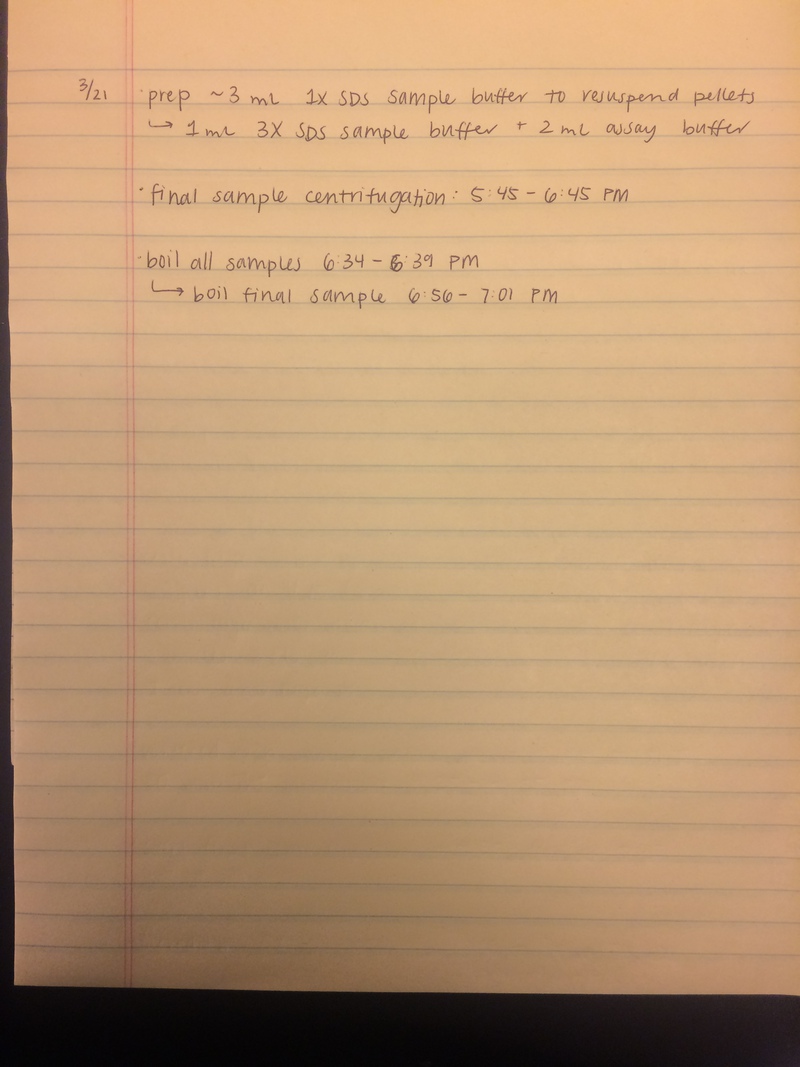 3/21 · prep ~3 mL 1X SDS sample buffer to resuspend pellets
↳ 1 mL 3X SDS sample buffer + 2 mL assay buffer
· final sample centrifugation: 5:45 - 6:45 PM
· boil all samples 6:34 - 6:39 PM
↳ boil final sample 6:56 - 7:01 PM